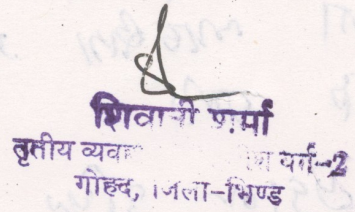 शिवानी शर्मा
तृतीय व्यवहार वर्ग-2
गोहद, जिला-भिण्ड